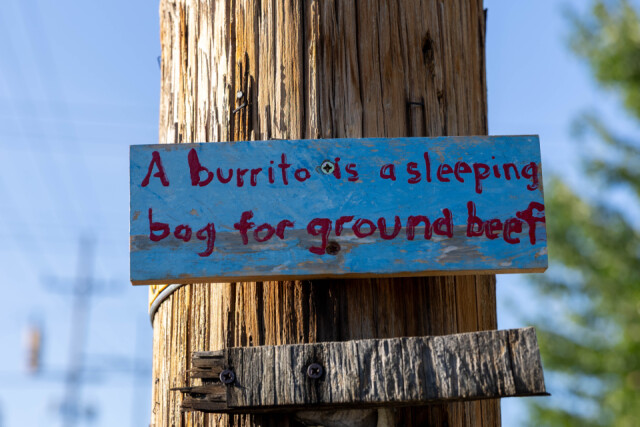 A burrito is a sleeping
bag for ground beef